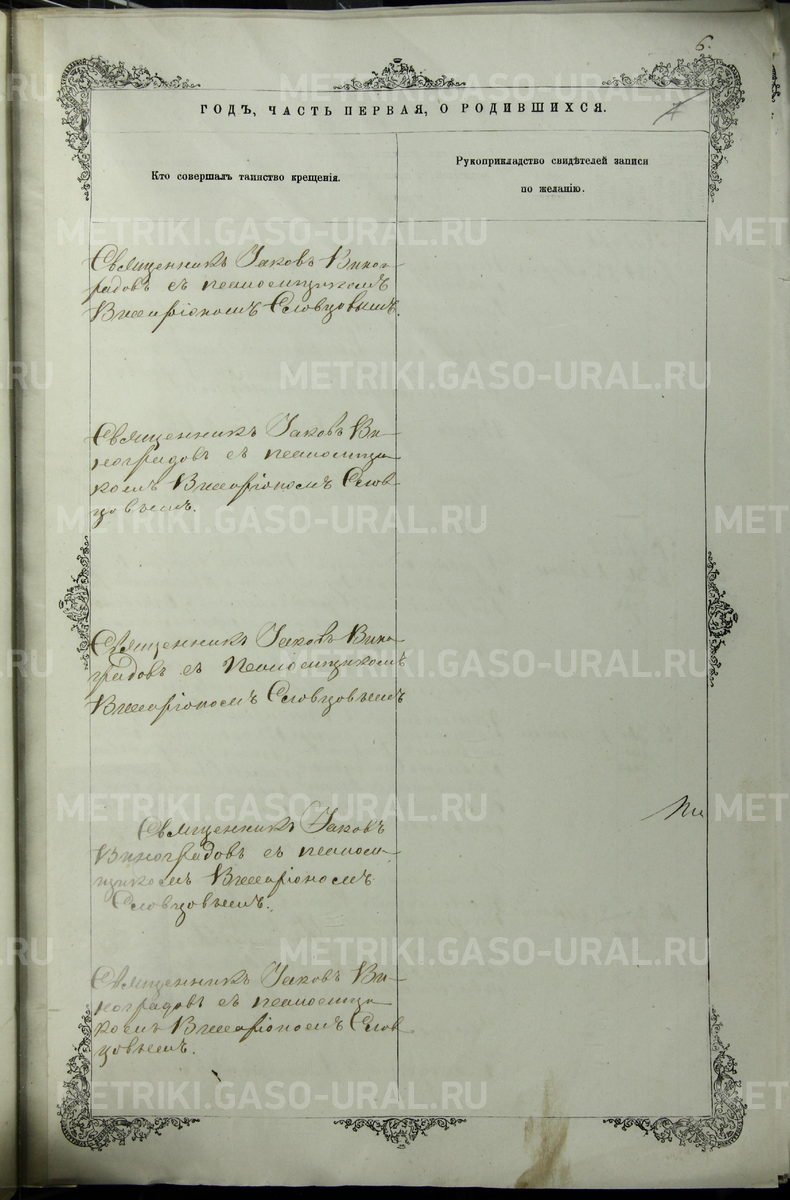 6.
ГОДЪ, ЧАСТЬ ПЕРВАЯ, О РОДИВШИХСЯ.
Кто совершалъ таинство крещенія.
Рукоприкладство свидѣтелей записи
по желанію.
Священникъ Іаковъ Виног-
радовъ съ псаломщикомъ
Иларіономъ Словцовымъ.
Священникъ Іаковъ Ви-
ноградовъ съ псаломщи-
комъ Иларіономъ Слов-
цовымъ.
Священникъ Іаковъ Вино-
градовъ съ Псаломщикомъ
Иларіономъ Словцовымъ
Священникъ Іаковъ
Виноградовъ съ псалом-
щикомъ Иларіономъ
Словцовымъ.
Священникъ Іаковъ Ви-
ноградовъ съ псаломщи-
комъ Иларіономъ Слов
цовымъ.
METRIKI.GASO-URAL.RU